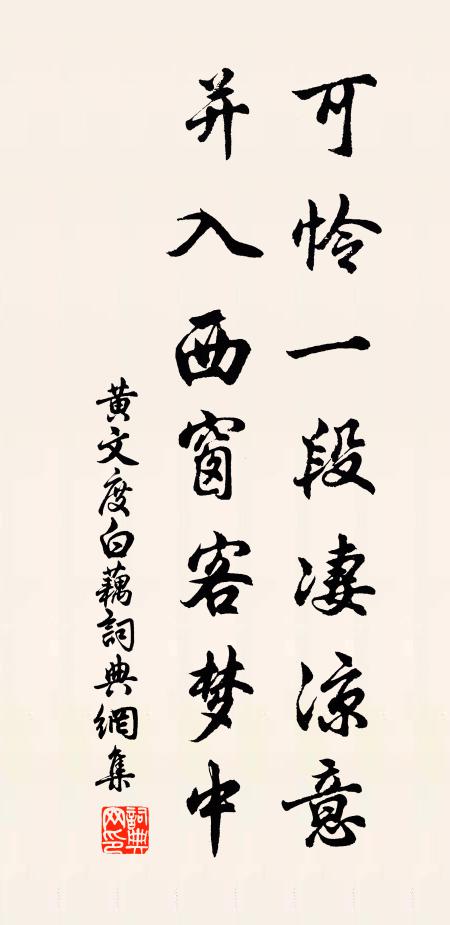 可怜一段凄涼意
并入西窗客梦中
黄文度白藕詞典網集
詞典网印